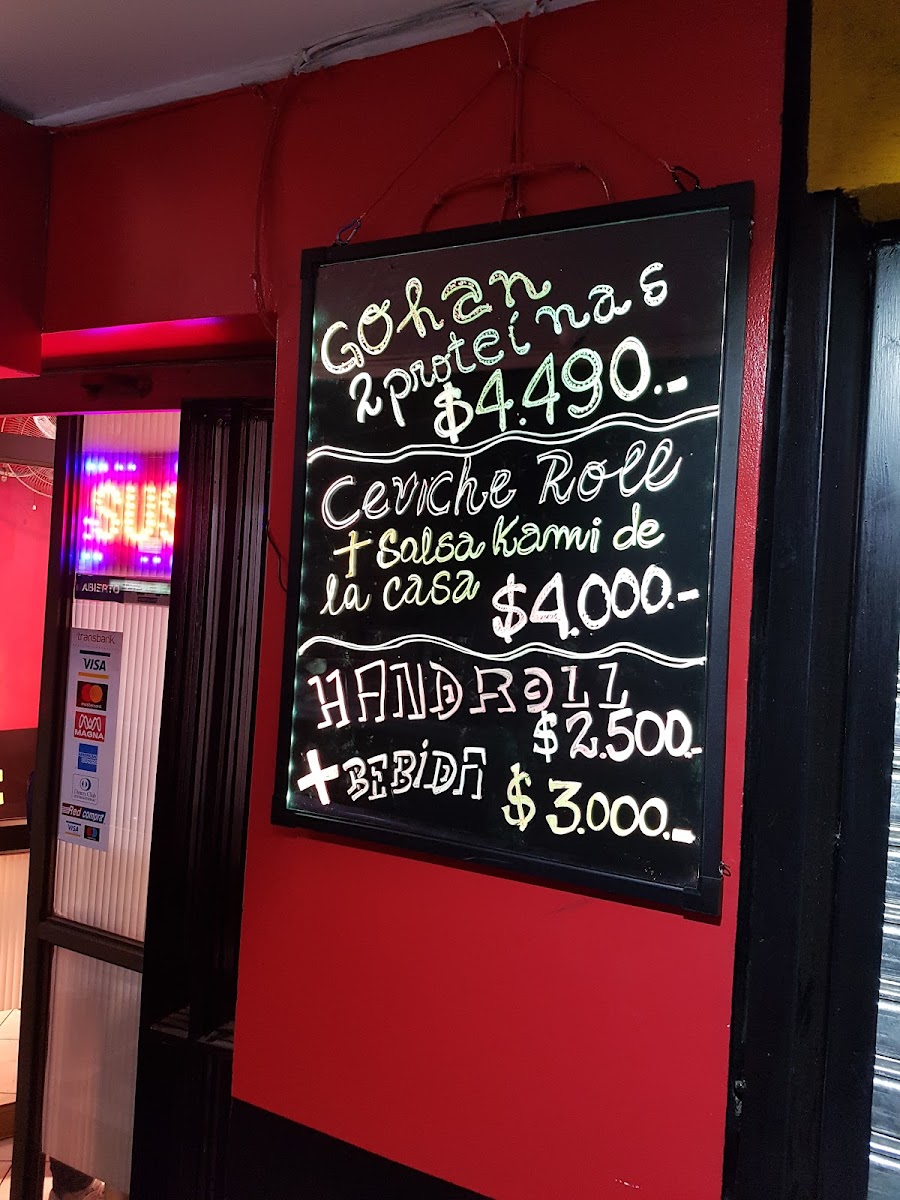 Gohan
2 proteínas
$4.490.-
Ceviche Roll
+ Salsa Kami de
la casa $4.000.-
HANDROLL
$2.500.-
+ BEBIDA $3.000.-
SUS
ABIERTO
transbank.
VISA
mastercard
MAGNA
Diners Club
Red compra
VISA